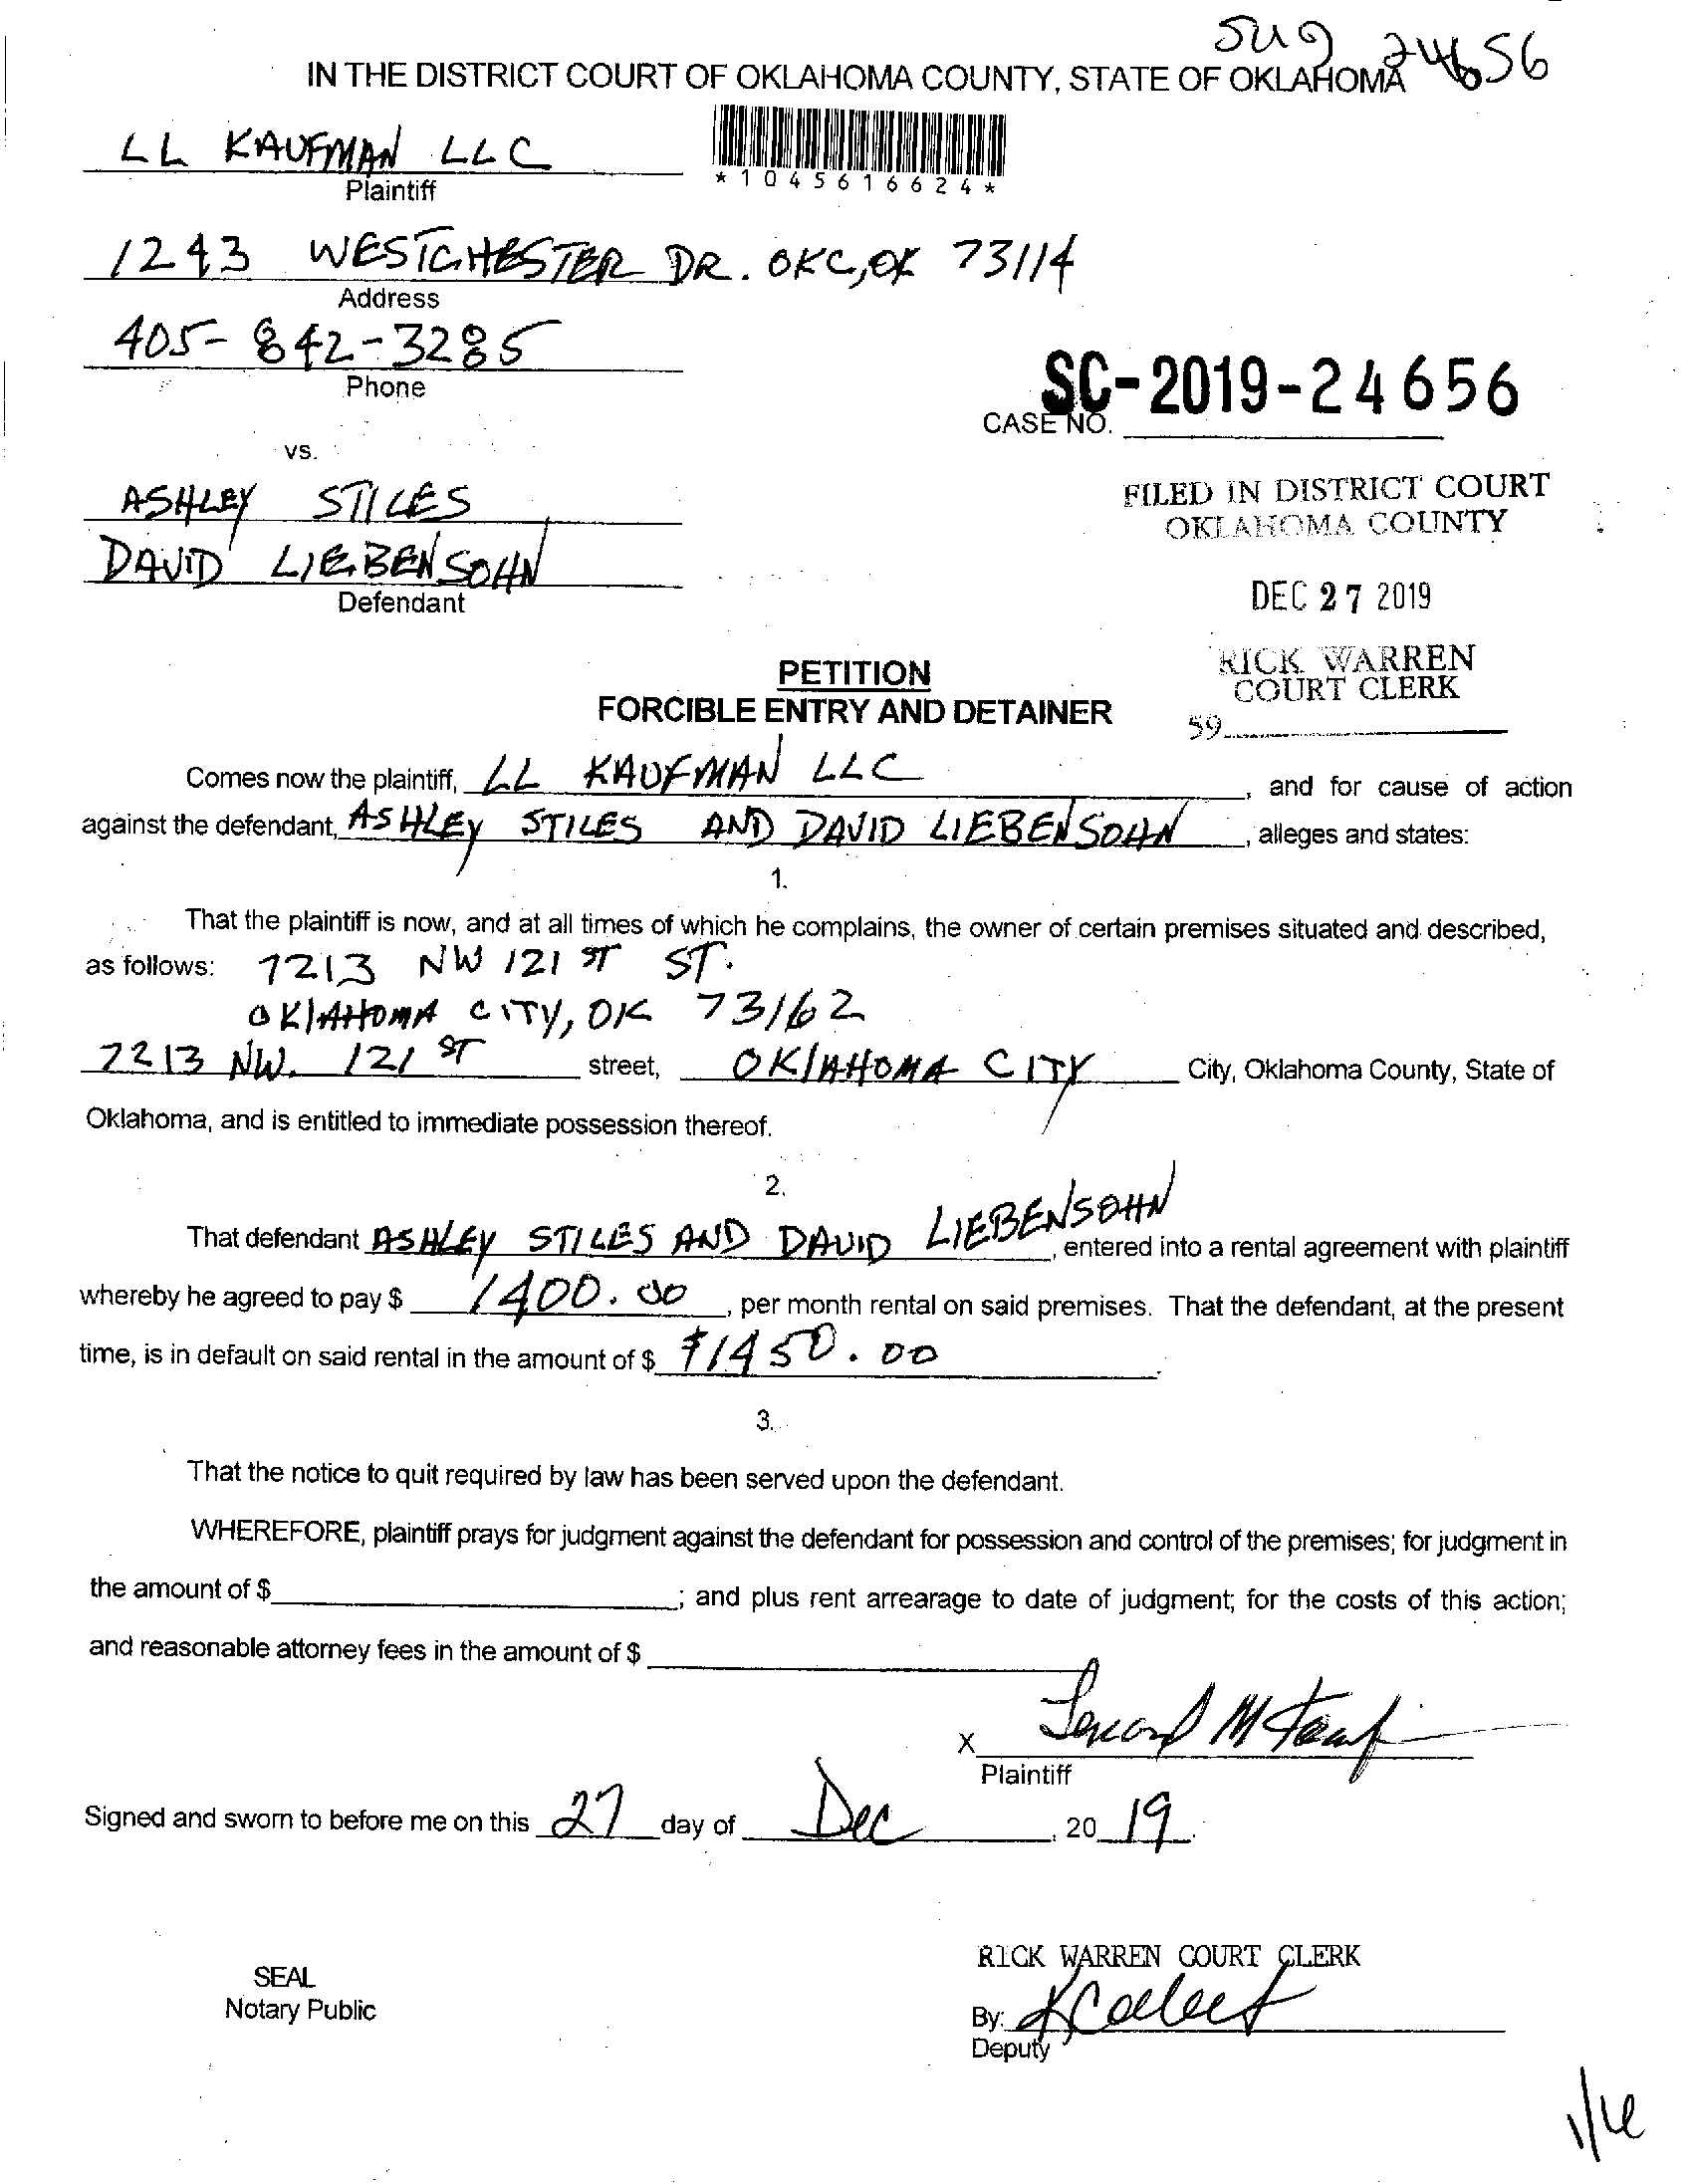 IN THE DISTRICT COURT OF OKLAHOMA COUNTY, STATE OF OKLAHOMA
24656
LL KAUFMAN LLC
Plaintiff
*1045616624*
1243 WESTCHESTER DR. OKC, OK 73114
Address
405-842-3285
Phone
SC-2019-24656
CASE NO.
vs.
ASHLEY STILES
DAVID LIEBENSOHN
Defendant
FILED IN DISTRICT COURT
OKLAHOMA COUNTY
DEC 27 2019
RICK WARREN
COURT CLERK
59
PETITION
FORCIBLE ENTRY AND DETAINER
Comes now the plaintiff, LL KAUFMAN LLC, and for cause of action
against the defendant, ASHLEY STILES AND DAVID LIEBENSOHN, alleges and states:
1.
That the plaintiff is now, and at all times of which he complains, the owner of certain premises situated and described,
as follows: 7213 NW 121 ST ST.
OKLAHOMA CITY, OK 73162
7213 NW. 121 ST street, OKLAHOMA CITY City, Oklahoma County, State of
Oklahoma, and is entitled to immediate possession thereof.
2.
That defendant ASHLEY STILES AND DAVID LIEBENSOHN, entered into a rental agreement with plaintiff
whereby he agreed to pay $ 1400.00, per month rental on said premises. That the defendant, at the present
time, is in default on said rental in the amount of $ $1450.00.
3.
That the notice to quit required by law has been served upon the defendant.
WHEREFORE, plaintiff prays for judgment against the defendant for possession and control of the premises; for judgment in
the amount of $ ; and plus rent arrearage to date of judgment; for the costs of this action;
and reasonable attorney fees in the amount of $
X
Plaintiff
Signed and sworn to before me on this 27 day of Dec, 20 19.
SEAL
Notary Public
RICK WARREN COURT CLERK
By:
Deputy